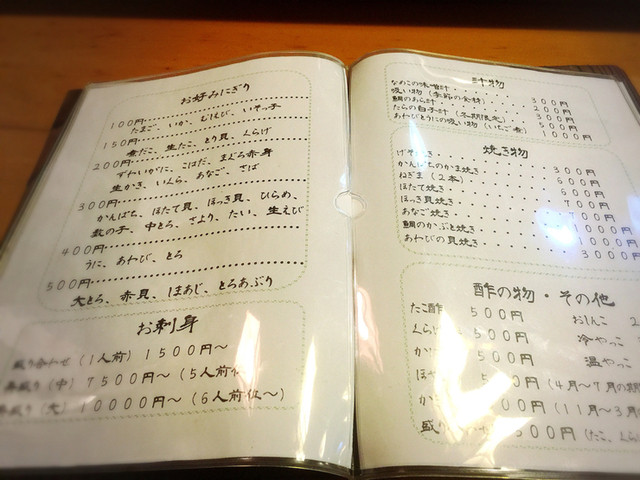 お好みにぎり
100円
たまご、いか、むしえび、いそっ子
150円
煮だこ、生たこ、とり貝、くらげ
200円
ずわいがに、こはだ、まぐろ赤身
生かき、いくら、あなご、さば
300円
かんぱち、ほたて貝、ほっき貝、ひらめ、
数の子、中とろ、さより、たい、生えび
400円
うに、あわび、とろ
500円
大とろ、赤貝、ほあじ、とろあぶり
お刺身
盛り合わせ（1人前）1500円〜
盛り（中）7500円〜（5人前位
盛り（大）10000円〜（6人前位〜）
汁物
なめこの味噌汁 300円
吸い物（季節の食材） 200円
鯛のあら汁 300円
たらの白子汁（冬期限定）
あわびとうにの吸い物（いちご煮） 1000円
焼き物
げそ焼き 300円
かんぱちのかま焼き 600円
ねぎま（2本） 600円
ほたて焼き 700円
ほっき貝焼き 700円
あなご焼き 1000円
鯛のかぶと焼き 1000円
あわびの貝焼き 3000円
酢の物・その他
たこ酢 500円 おしんこ
くらげ 500円 冷やっこ
500円 温やっこ
500円（4月〜7月の期
00円（11月〜3月
盛り 500円（たこ、くら